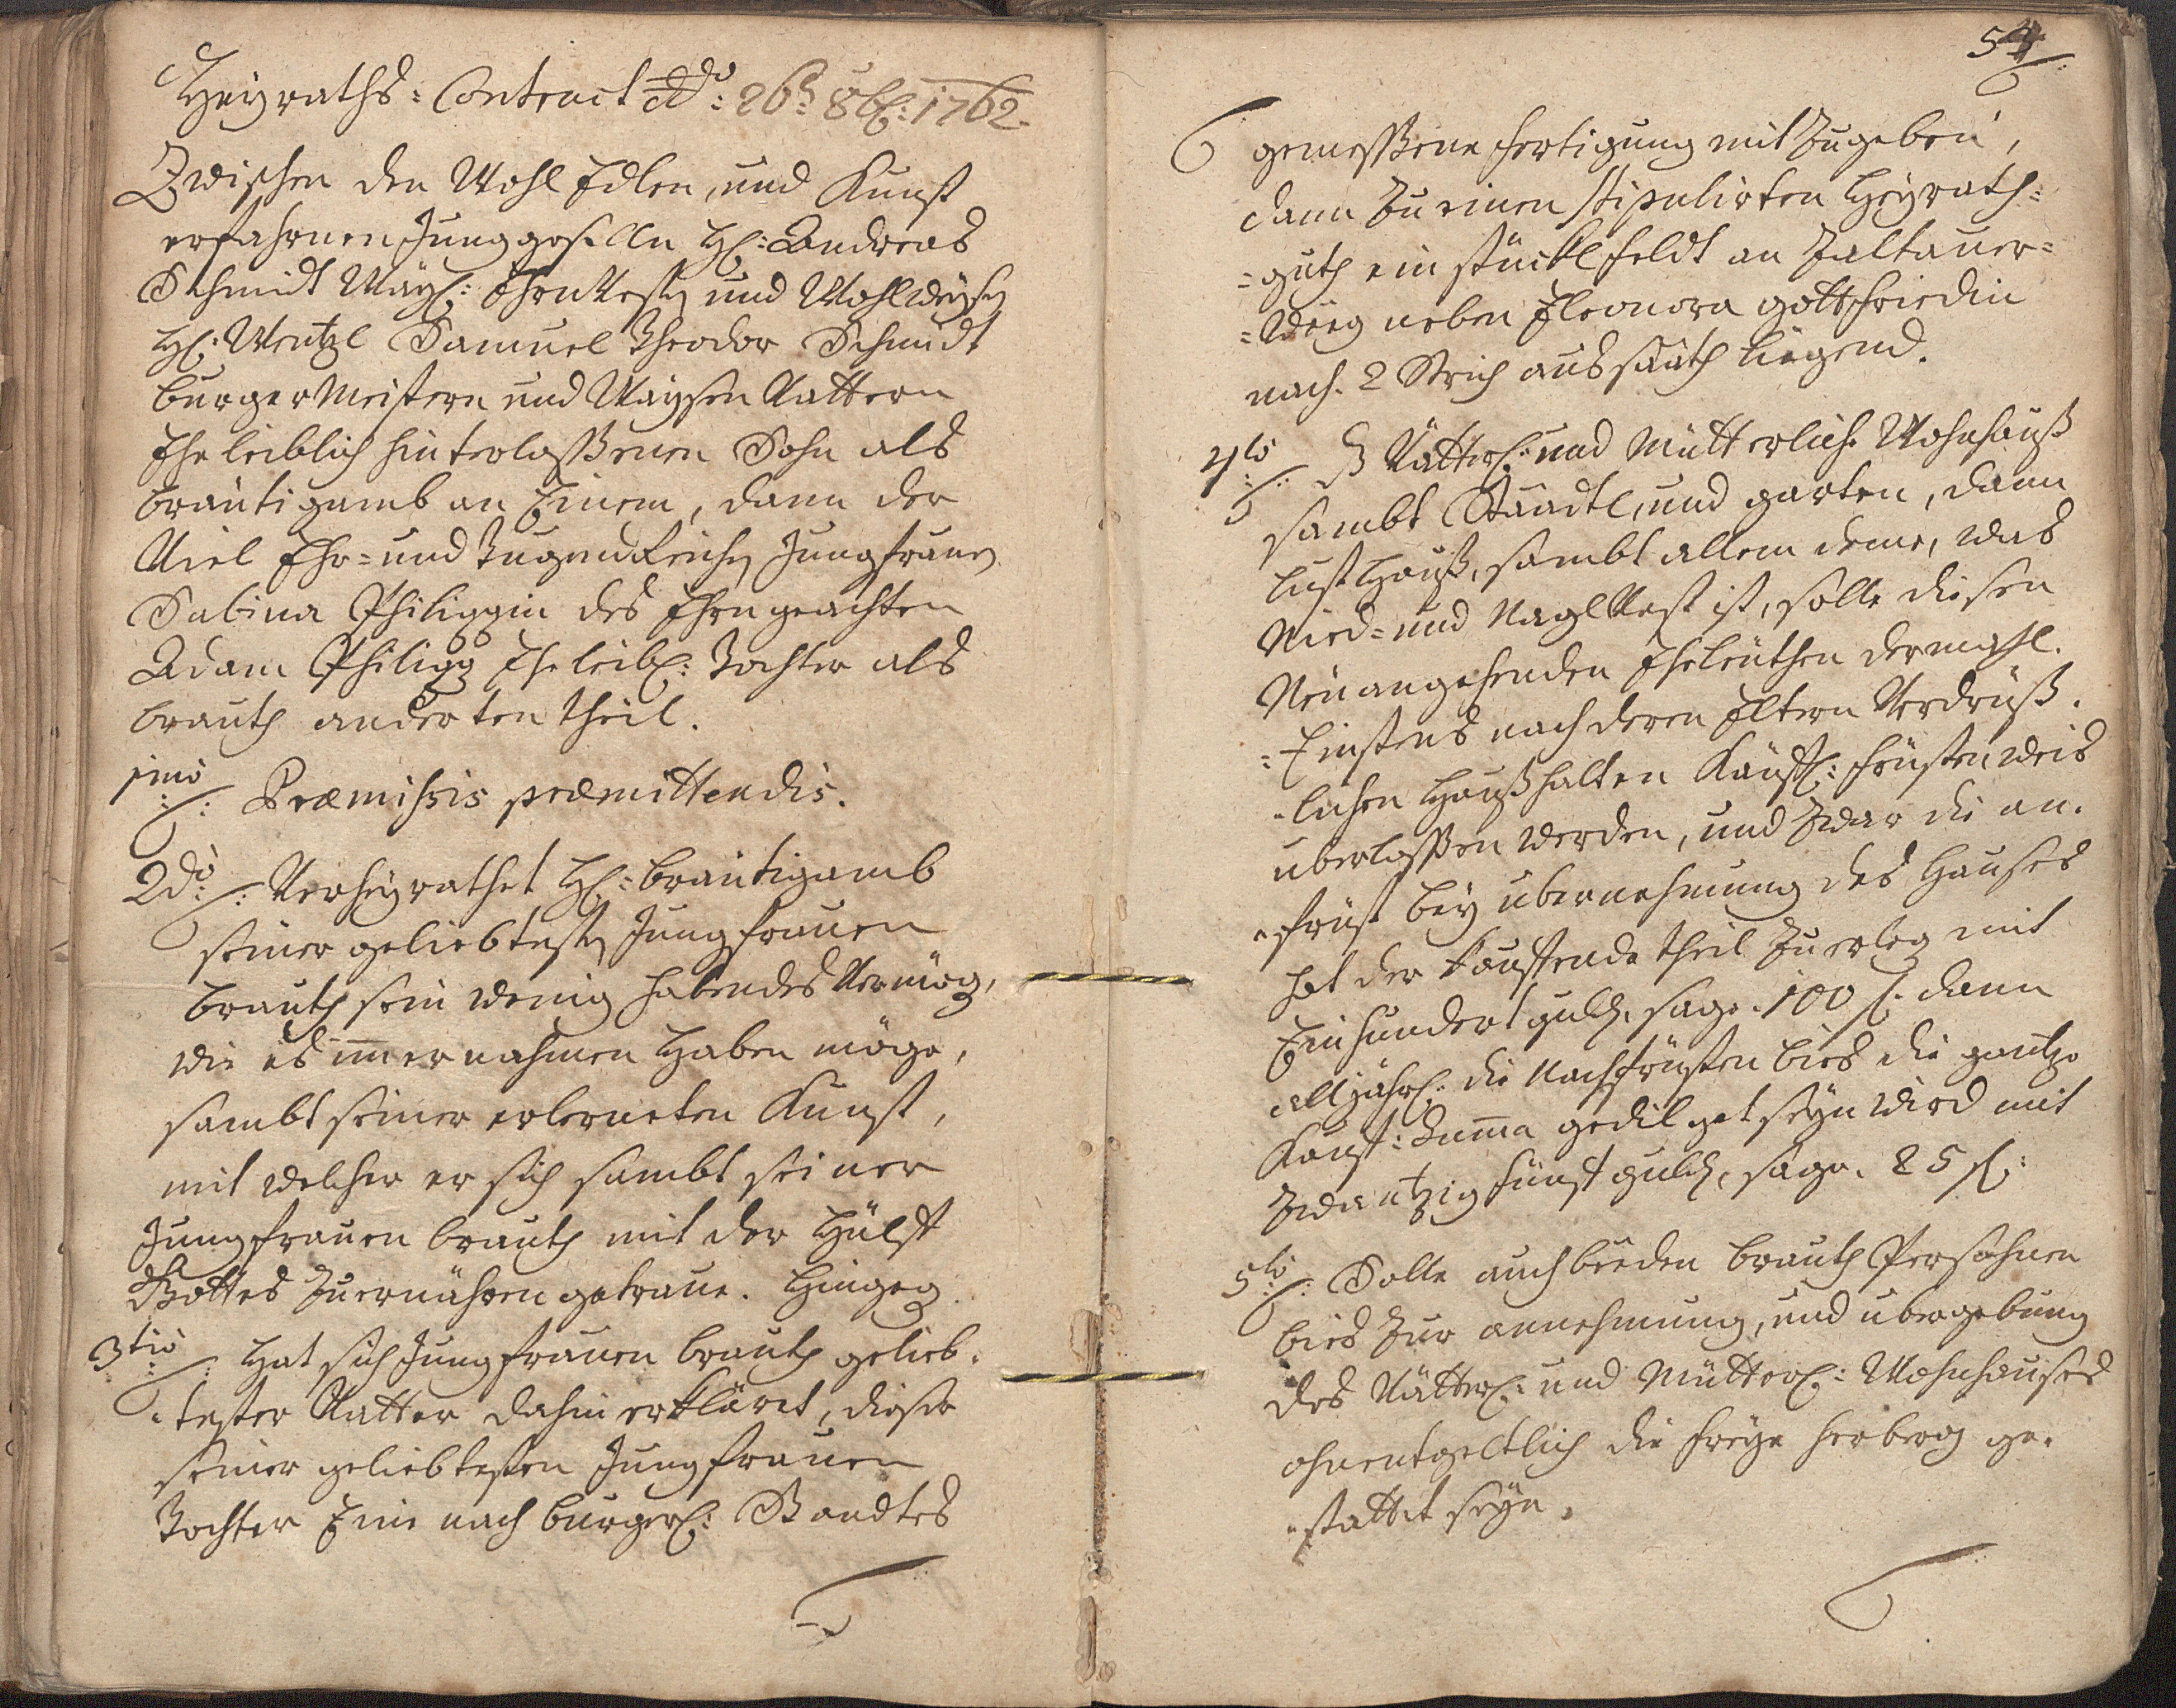 Heyraths=Contract ddo: 26t 8b: 1762.
Zwischen den Wohl Edlen, und Kunst
erfahrnen Junggeselln H: Andreas
Schmidt Way: Ehrnvest und Wohlweysen
H: Wentzl Samuel Theodor Schmidt
burgerMeistern und Waysen Vattern
Ehe leiblich hinterlaßenen Sohn als
bräutigamb an Einem, dann der
Viel Ehr= und Tugendreichen Jungfrauen
Sabina Philippin des Ehrngeachten
Adam Philipp Eheleib: Tochter als
brauth anderten theil.
1mo: Præmissis præmittendis.
2do: Verheyrathet H: bräutigamb
seiner geliebtesten Jungfrauen
brauth sein wenig habendes Vermög,
wie es immer nahmen Haben möge,
sambt seiner erlerneten Kunst,
mit welcher er sich sambt seiner
Jungfrauen brauth mit der Hülff
Gottes zu ernähren getraue. Hingeg
3tio: Hat sich Jungfrauen brauth gelieb=
=tester Vatter dahin erkläret, dieser
seiner geliebtesten Jungfrauen
Tochter Eine nach burger: Standtes
54
gemeßene fertigung mit zu geben,
dann zu einen stipulirten Heyrath=
=guth ein stückl feldt an Saltauer=
=Weeg neben Eleonora gottfriedin
nach 2 Strich aussaath liegend.
4to: Vätter: und Mütterliche Wohnhauß
sambt Stadtl, und garten, dann
lust Hauß, sambt allem deme, was
Nied= und Naglvest ist, solle diesen
Neu angehenden Eheleuthen dermahl.
=Einstens nach deren Eltern Verdrüß=
=lichen Haußhalten Käuff: früstenweis
überlaßen werden, und zwar die an=
=früst bey übernehmung des Hauses
hat der kauffende theil zu erleg mit
Ein hundert guld, sage 100 f. dann
alljähr: die Nachfrüsten bies die gantze
Kauf: Summa gedilget seyn wird mit
zwantzig fünf guld, sage. 25 f:
5to: Solle auch beeden brauth Persohnen
bies zur annehmung, und übergebung
des Vätter: und Mütter: Wohnhauses
ohnentgeltlich die freye herberg ge=
=stattet seyn.